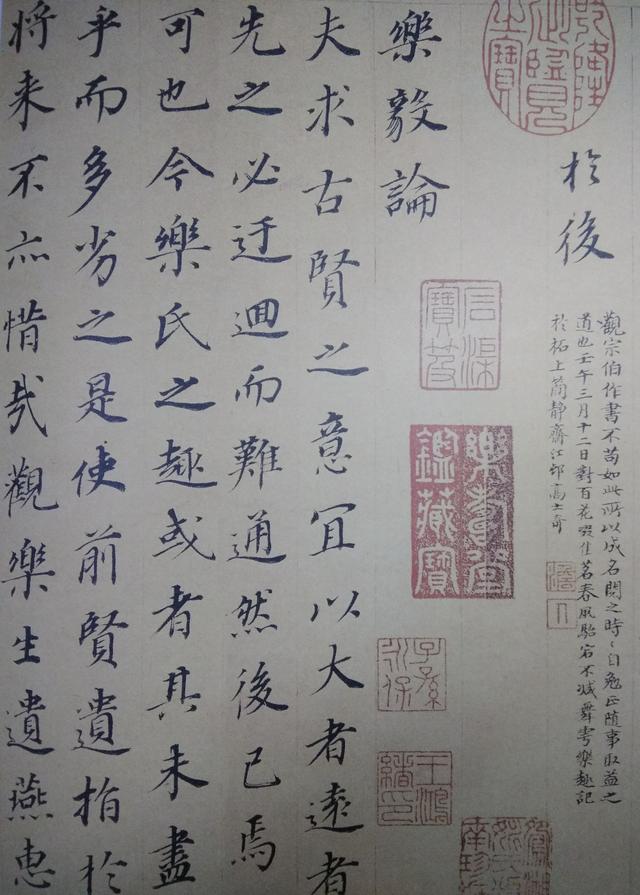 於後
觀宗伯作書不苟如此所以成名閱之時〻自勉正隨事取益之
道也壬午三月十二日對百花啜佳茗春風駘宕不減舞雩樂趣記
於柘上簡靜齋江邨高士奇
樂壽堂鑑藏寶
子孫永保
王鴻緒印
樂毅論
夫求古賢之意宜以大者遠者
先之必迂迴而難通然後已焉
可也今樂氏之趣或者其未盡
乎而多劣之是使前賢遺指於
將来不亦惜哉觀樂生遺燕惠